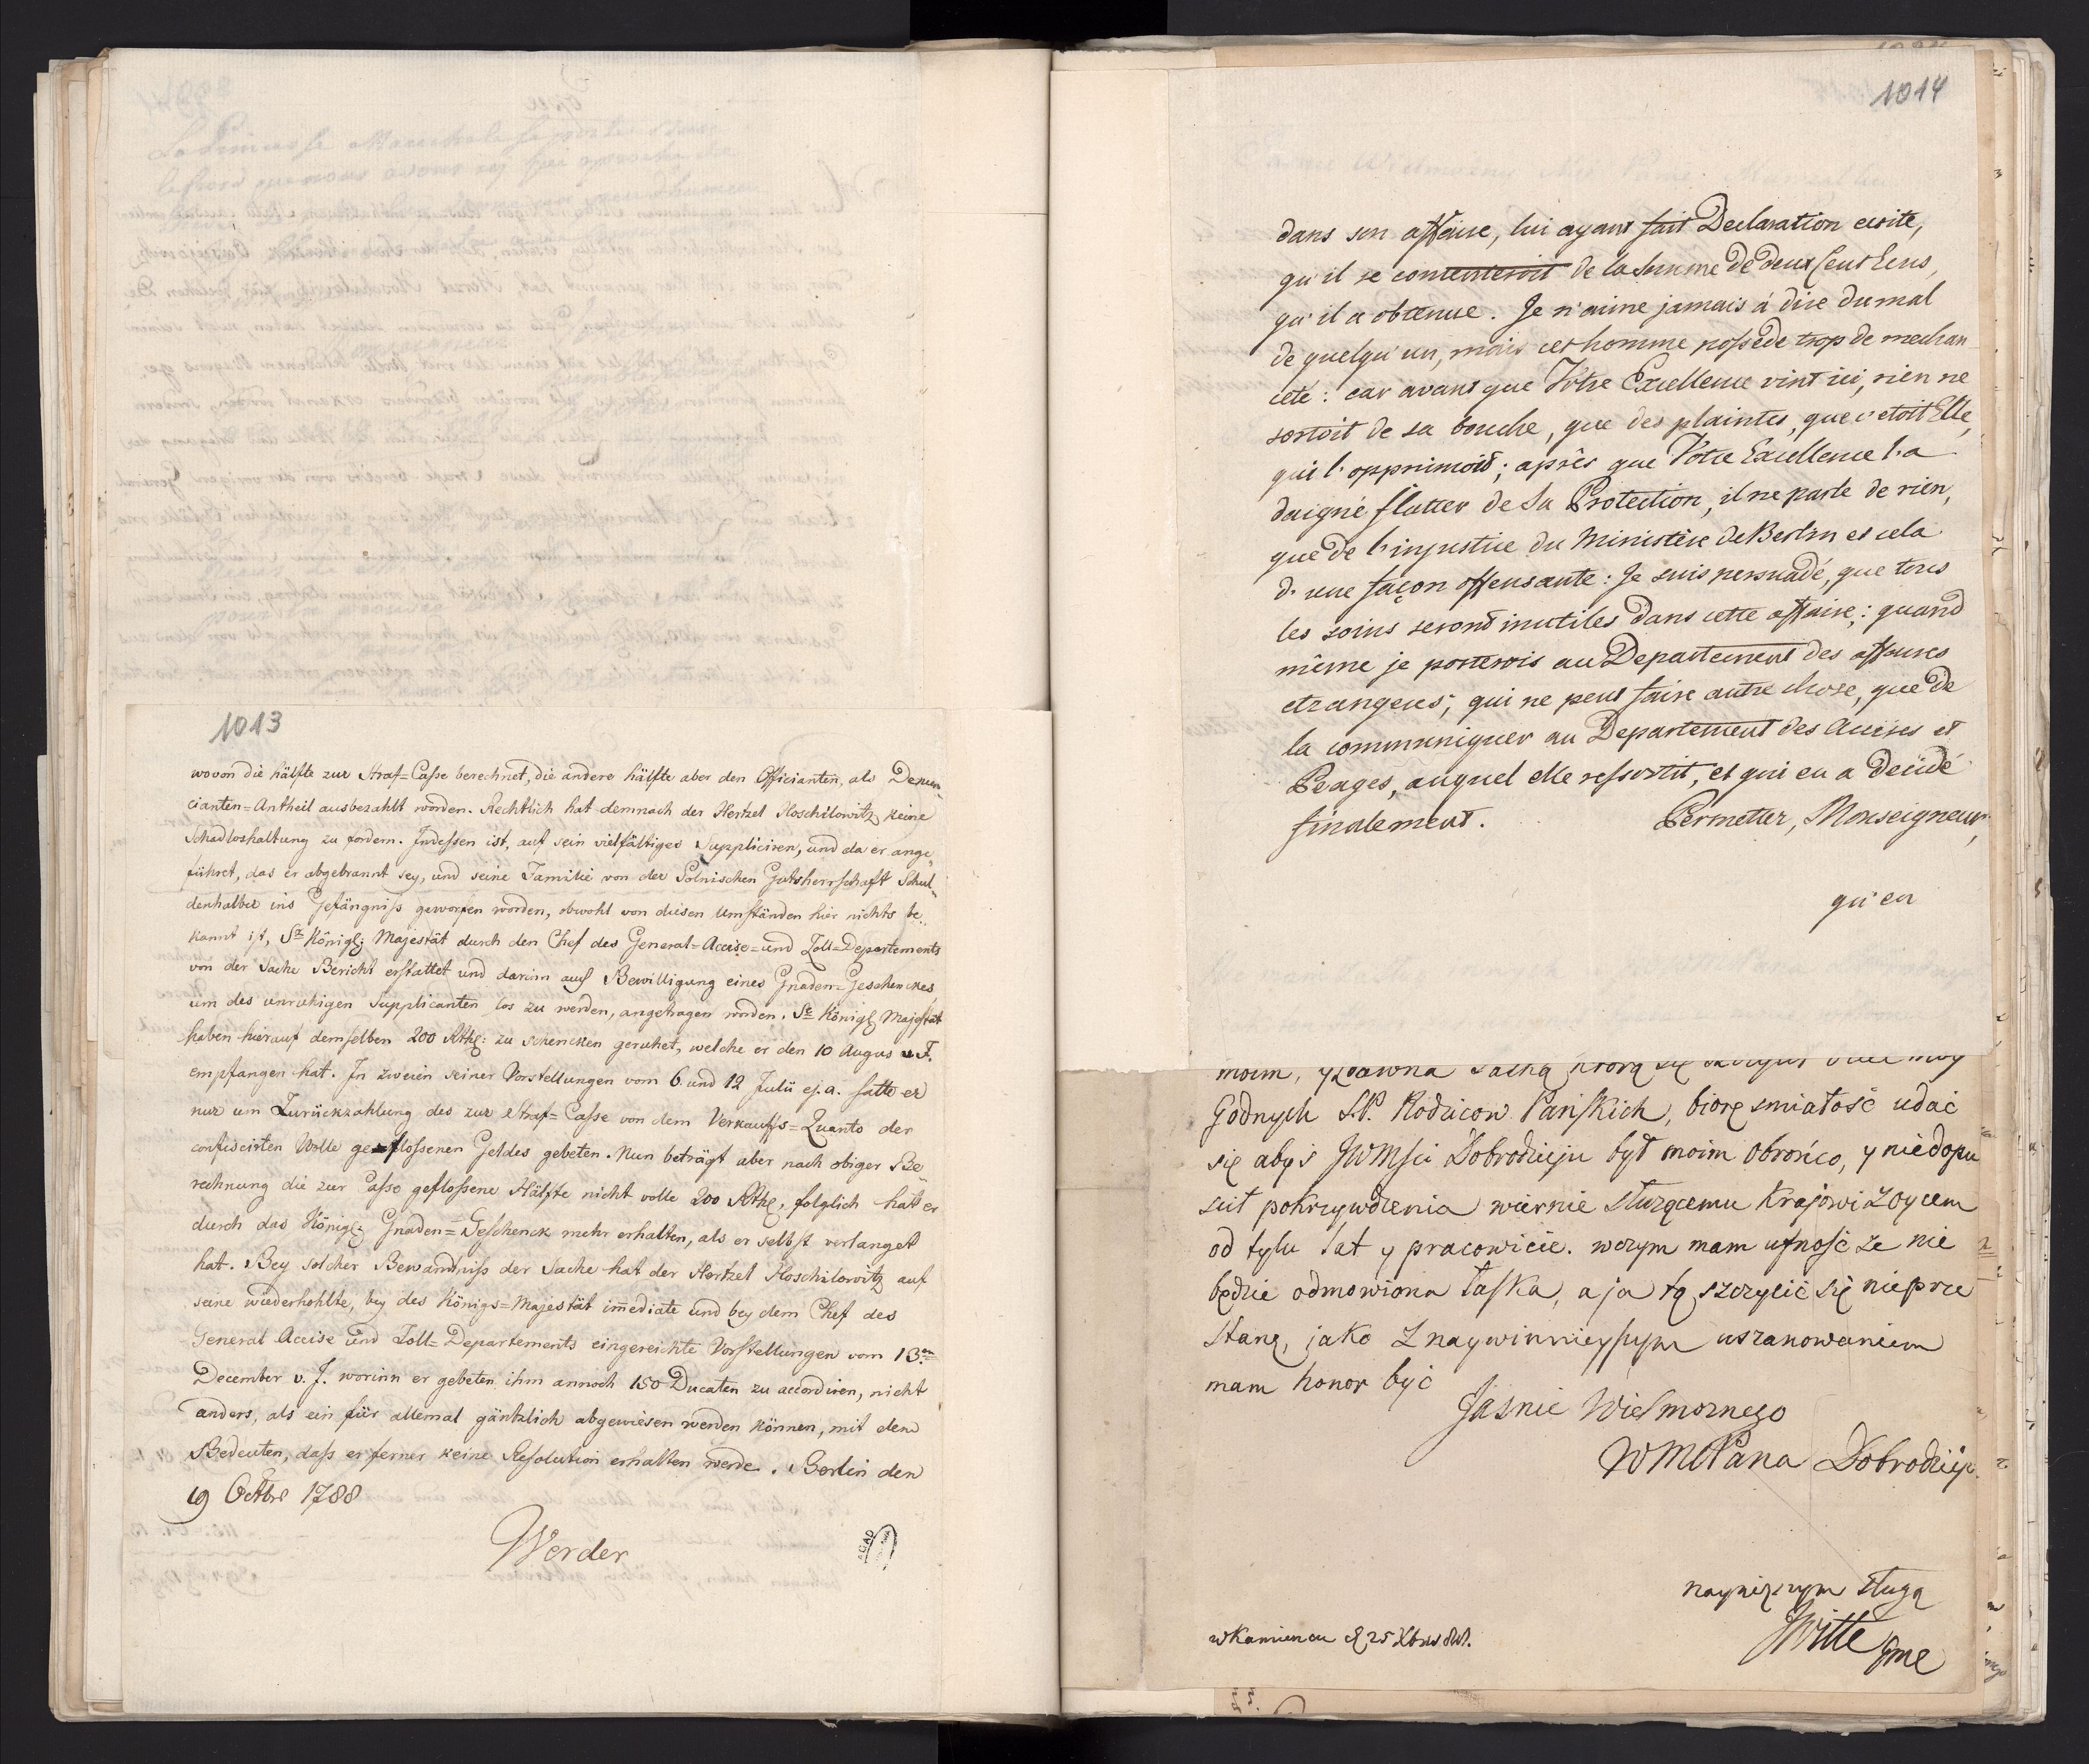 1013
wovon die hälfte zur Straf=Casse berechnet, die andere hälfte aber den Officianten, als Denun„
cianten=Antheil ausbezahlt worden. Rechtlich hat demnach der Hertzel Hoschilowitz keine
Schadloshaltung zu fordern. Indessen ist, auf sein vielfältiges Suppliciren, und da er ange„
führet, das er abgebrannt sey, und seine Familie von der Polnischen Gutsherrschaft Schul„
denhalber ins Gefängniss geworfen worden, obwohl von diesen Umständen hier nichts be„
kannt ist, Sr Königl: Majestät durch den Chef des General=Accise=und Zoll=Departements
von der Sache Bericht erstattet und darinn auf Bewilligung eines Gnaden=Geschenckes
um des unruhigen Supplicanten los zu werden, angetragen worden. Se Königl Majestät
haben hierauf demselben 200 Rthl: zu schencken geruhet, welche er den 10 Augus v. J.
empfangen hat. In zweien seiner Vorstellungen vom 6 und 12 Julii ej. a. hatte er
nur um Zurückzahlung des zur Straf=Casse von dem Verkauffs=Quanto der
confiscirten Wolle geflossenen Geldes gebeten. Nun beträgt aber nach obiger Be„
rechnung die zur Casse geflossene Hälfte nicht volle 200 Rthl, folglich hat er
durch das Königl: Gnaden=Geschenck mehr erhalten, als er selbst verlanget
hat. Bey solcher Bewandniss der Sache hat der Hertzel Hoschilowitz auf
seine wiederhohlte, bey des Königs=Majestät im̅ediate und bey dem Chef des
General Accise und Zoll=Departements eingereichte Vorstellungen vom 13en
December v. J. worinn er gebeten ihm annoch 150 Ducaten zu accordiren, nicht
anders, als ein für allemal gäntzlich abgewiesen werden können, mit dem
Bedeuten, dass er ferner keine Resolution erhalten werde. Berlin den
19 Octbr 1788
Werder
AGAD
1014
dans son affaire, lui ayant fait Declaration ecrite,
qu'il se contenteroit de la Summe de deux Cent Ecus,
qu'il a obtenue. Je n'aime jamais à dire du mal
de quelqu'un, mais cet homme possede trop de mechan
ceté: car avant que Votre Excellence vint ici, rien ne
sortoit de sa bouche, que des plaintes, que c'etoit Elle,
qui l'opprimoit; après que Votre Excellence l'a
daigné flatter de Sa Protection, il ne parle de rien,
que de l'injustice du Ministère de Berlin et cela
d'une façon offensante: Je suis persuadé, que tous
les soins seront inutiles dans cette affaire; quand
même je porterois au Departement des affaires
etrangeres, qui ne peut faire autre chose, que de
la communiquer au Departement des Accises et
Peages, auquel elle ressortit, et qui en a decidé
finalement. Permetter, Monseigneur,
qu'en
moim, y zdawna
Godnych S.P. Rodzicow Pańskich, biorę smiałość udać
się abyś JWMsci Dobrodzieju był moim obrońco, y niedopu
scił pokrzywdzenia wiernie służącemu Krajowi z oycem
od tylu lat y pracowicie. wczym mam ufność że nie
będzie odmowiona łaska, a ja tą szczycić się nieprze
stanę, jako z naywinnieyszym uszanowaniem
mam honor być
Jasnie Wielmoznego
WMPana Dobrodzieja
nayniższym sługą
JWitte
w Kamiencu d 25 Xbris